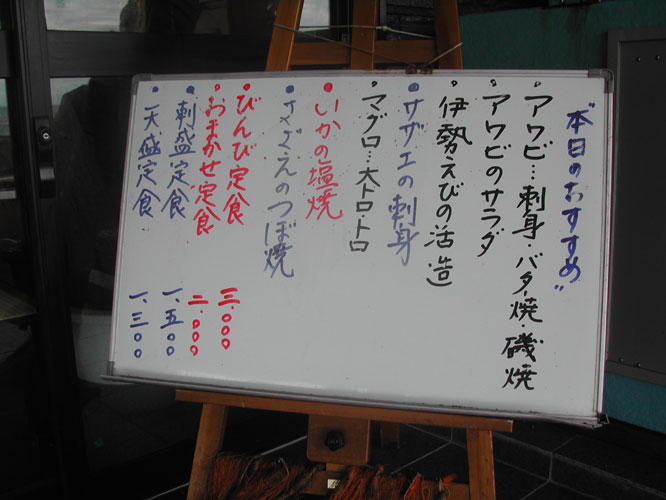 "本日のおすすめ"
・アワビ…刺身・バター焼・磯焼
・アワビのサラダ
・伊勢えびの活造り
・サザエの刺身
・マグロ…大トロ・トロ
・いかの塩焼
・さざえのつぼ焼
・びんび定食 三、〇〇〇
・おまかせ定食 二、〇〇〇
・刺盛定食 一、五〇〇
・天盛定食 一、三〇〇